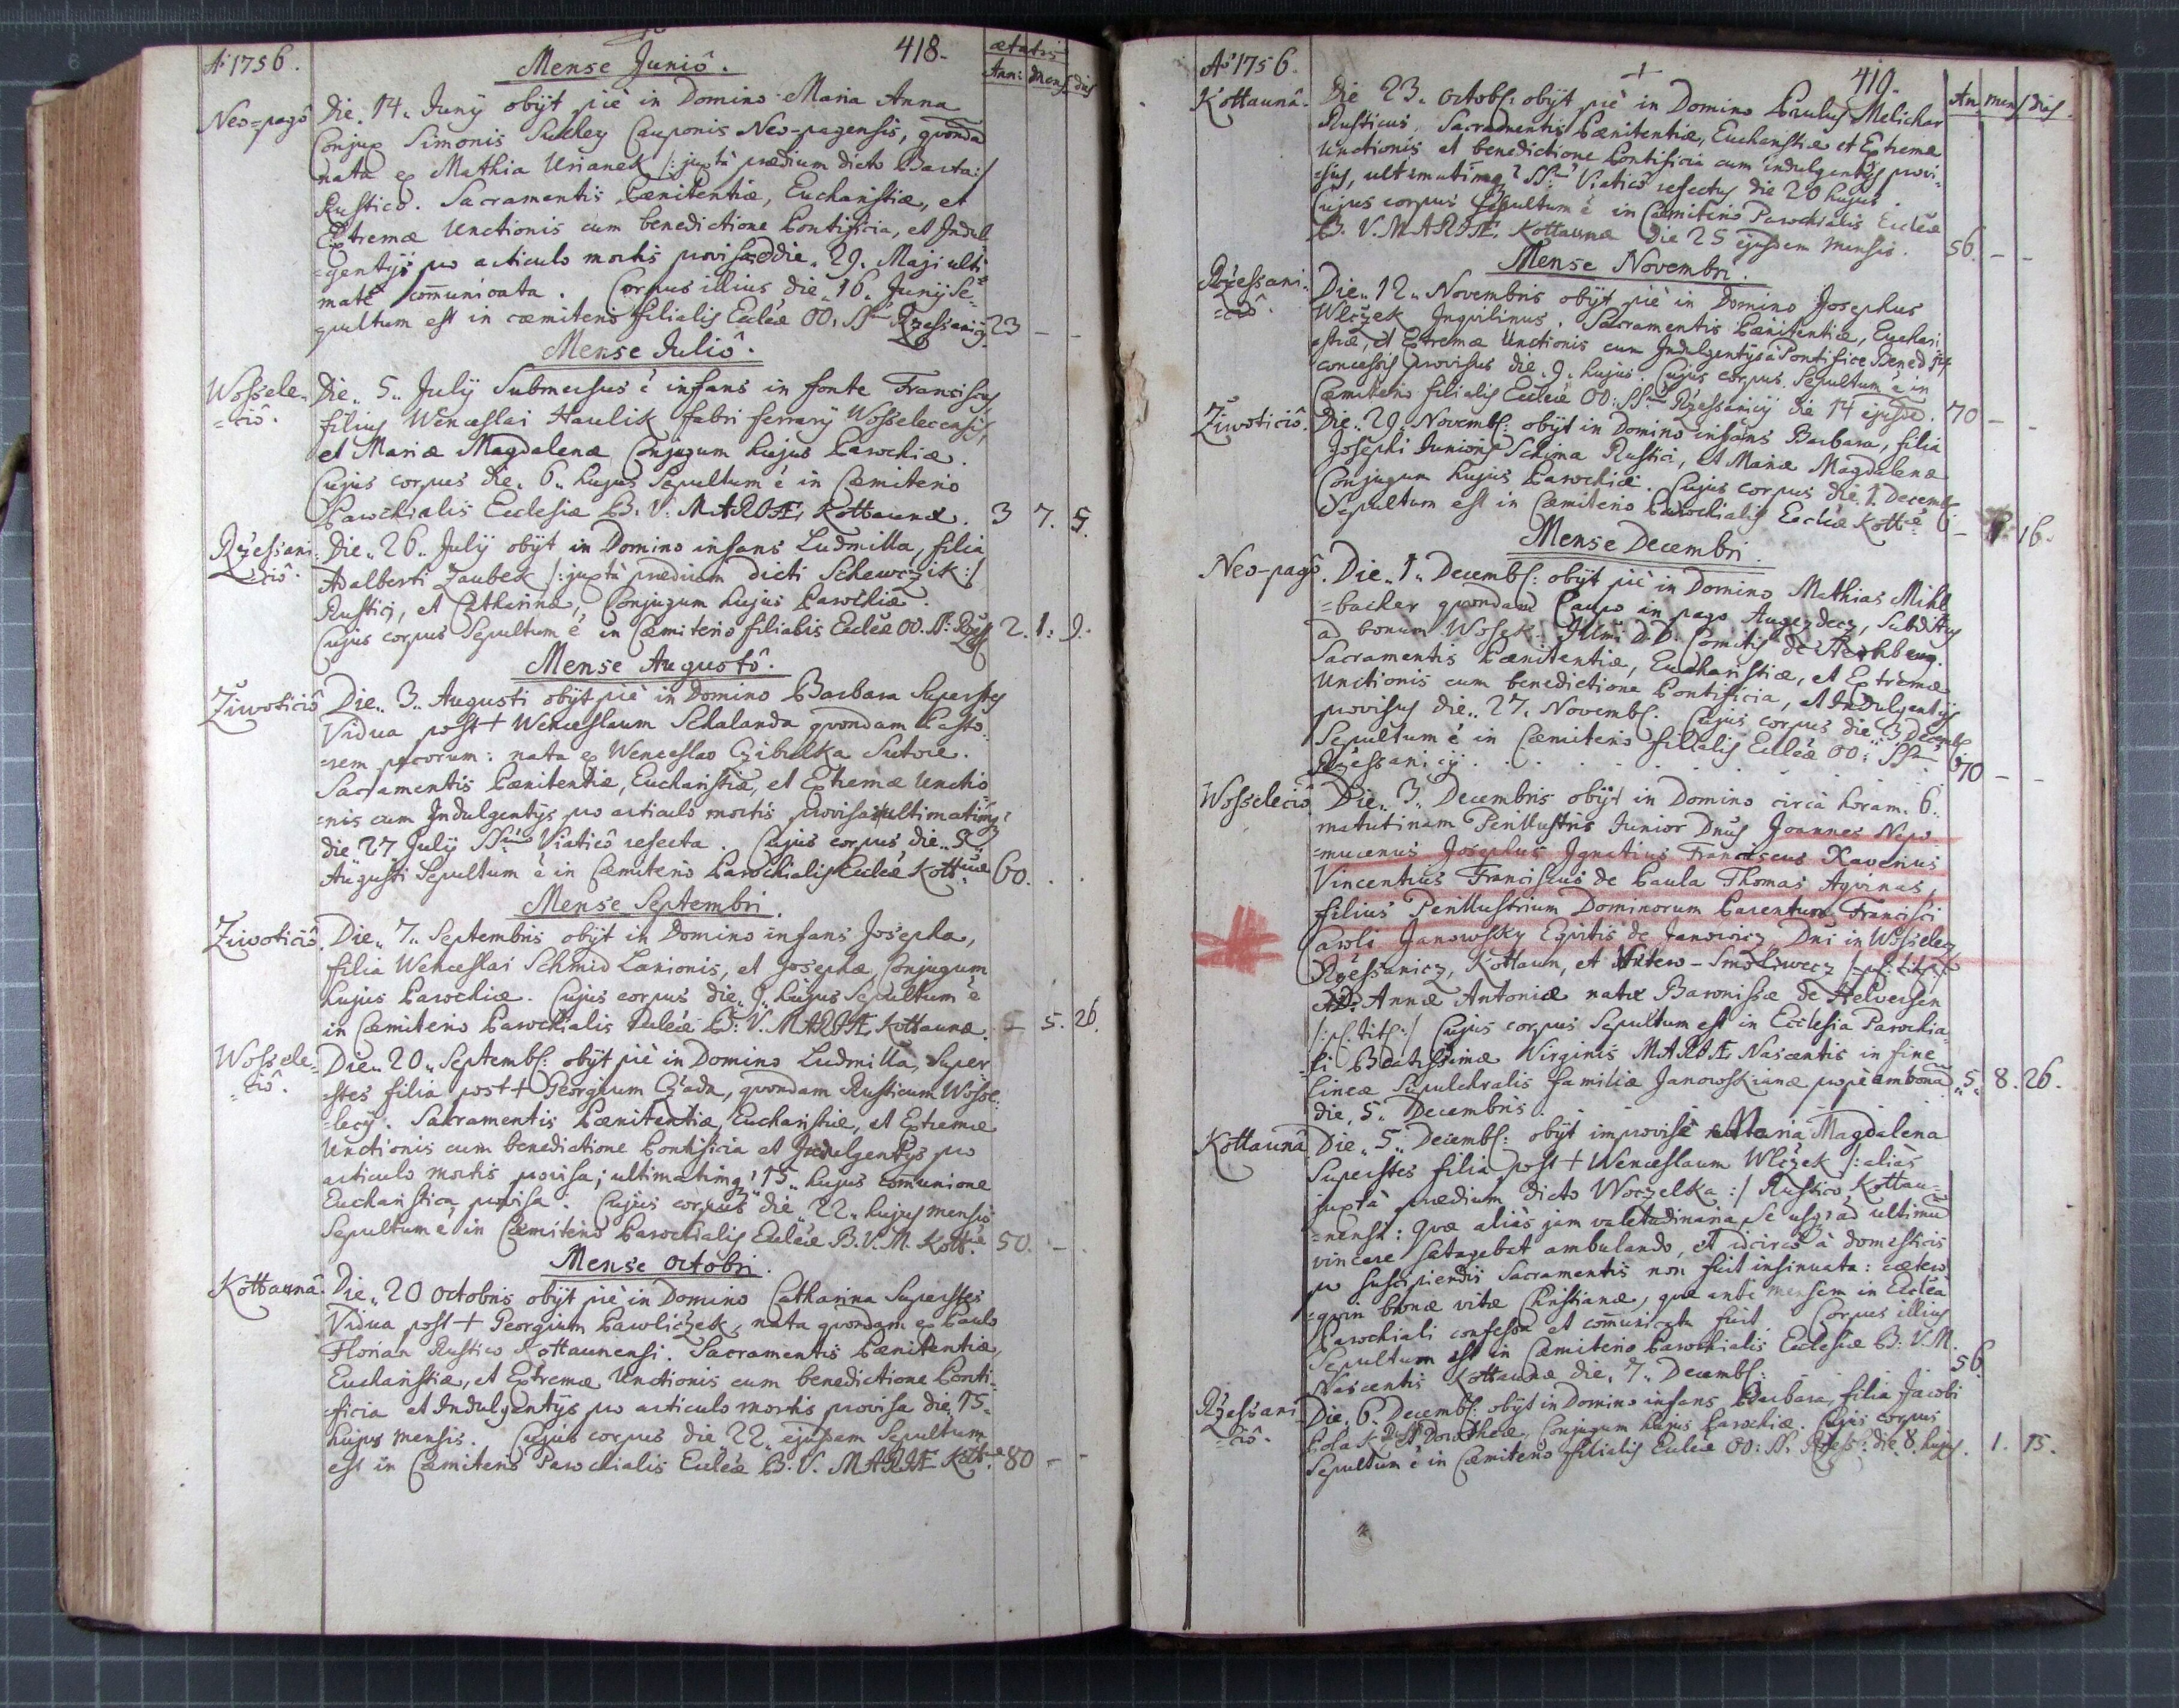 Aō 1756.
Mense Juniô.
418.
ætatis
Ann: Mens dies
Neo-pagô
Die. 14. Juny obijt piè in Domino Maria Anna
Conjux Simonis Sukey Cauponis Neo-pagensis, qvonda
nata ex Mathia Urianek /: juxtà prædium dicto Barta :/
Rustico. Sacramentis Pænitentiæ, Eucharistiæ, et
Extremæ Unctionis cum benedictione Pontificia, et Indul
=gentijs pro articulo mortis provisa die. 29. Maji ulti=
matè comunicata. Corpus illius die „ 16 „ Juny Se=
pultum est in cæmiterio filialis Ecclæ OO. SS Rzessanicij 23 - -
Mense Juliô.
Wossele=
=ciô.
Die „ 5 „ July Submersus ē infans in fonte Franciscus
filius Wenceslai Haulik fabri ferrarij Wosselecensis,
et Mariæ Magdalenæ Conjugum hujus Parochiæ.
Cujus corpus die „ 6 „ hujus Sepultum ē in Cæmiterio
Parochialis Ecclesiæ B. V. MARIÆ Kottaunæ. 3 7. 5.
Rzessani=
=ciô.
Die „ 26 „ July obijt in Domino infans Ludmilla, filia
Adalberti Zaubek /: juxtà prædium dicti Schewczik :/
Rustici, et Catharinæ, Conjugum hujus Parochiæ.
Cujus corpus Sepultum ē in Cæmiterio filialis Ecclæ OO. SS. Rzess 2. 1. 9.
Mense Augustô.
Ziwoticiô
Die „ 3 „ Augusti obijt piè in Domino Barbara Superstes
Vidua post + Wenceslaum Schalanda qvondam Pasto
=rem pecorum: nata ex Wenceslao Czibulka Sutore.
Sacramentis Pænitentiæ, Eucharistiæ, et Extremæ Unctio
=nis cum Indulgentijs pro articulo mortis provisa, ultimatimq;
die 27 July SSmo Viaticô refecta. Cujus corpus die „ 5 „
Augusti Sepultum ē in Cæmiterio Parochialis Ecclæ Kottnæ 60. . .
Mense Septembri.
Ziwoticiô.
Die „ 7 „ Septembris obijt in Domino infans Josepha,
filia Wenceslai Schmid Lanionis, et Josephæ, Conjugum
hujus Parochiæ. Cujus corpus die „ 9 „ hujus Sepultum ē
in Cæmiterio Parochialis Ecclæ B: V. MARIÆ Kottaunæ. 5. 26.
Wossele=
=ciô.
Die „ 20 „ Septembs: obijt piè in Domino Ludmilla, Super
=stes filia post + Georgium Czadu, qvondam Rusticum Wosse=
=lecij. Sacramentis Pænitentiæ, Eucharistiæ, et Extremæ
Unctionis cum benedictione Pontificia et Indulgentijs pro
articulo mortis provisa; ultimatimq; „ 15 „ hujus comunione
Eucharistica provisa. Cujus corpus die „ 22 „ hujus mensis
Sepultum ē in Cæmiterio Parochialis Ecclæ B. V. M. Kott. 50. - .
Mense Octobri.
Kottaunâ.
Die „ 20 Octobris obijt piè in Domino Catharina Superstes
Vidua post + Georgium Pawliczek, nata qvondam ex Paulo
Florian Rustico Kottaunensi. Sacramentis Pænitentiæ,
Eucharistiæ, et Extremæ Unctionis cum benedictione Ponti=
=ficia et Indulgentijs pro articulo mortis provisa die „ 15 =
hujus mensis. Cujus corpus die 22 „ ejusdem Sepultum
est in Cæmiterio Parochialis Ecclæ B. V. MARIÆ Kott. 80 - -
Aō 1756.
419.
An. mens dies
Kottaunâ.
Die 23. Octobs: obijt piè in Domino Paulus Melichar
Rusticus, Sacramentis Pænitentiæ, Eucharistiæ et Extremæ
Unctionis et benedictione Pontificia cum indulgentijs provi=
=sus, ultimatimq; SSmo Viaticô refectus die 20 hujus.
Cujus corpus Sepultum ē in Cæmiterio Parochialis Ecclæ
B. V. MARIÆ Kottaunæ die 25 ejusdem mensis. 56. - -
Mense Novembri.
Rzessani=
=ciô.
Die „ 12 „ Novembris obijt piè in Domino Josephus
Wlczek Inqvilinus. Sacramentis Pænitentiæ, Euchari=
stiæ, et Extremæ Unctionis cum Indulgentijs à Pontifice Bened
concessis provisus die „ 9 „ hujus. Cujus corpus Sepultum ē in
Cæmiterio filialis Ecclæ OO: SS Rzessanicij die 14 ejusd. 70 - -
Ziwoticiô.
Die „ 29. Novembs: obijt in Domino infans Barbara, filia
Josephi Junioris Schima Rustici, et Mariæ Magdalenæ
Conjugum hujus Parochiæ. Cujus corpus die 1 Decembs
Sepultum est in Cæmiterio Parochialis Ecclæ Kottæ - 16.
Mense Decembri.
Neo-pagô.
Die „ 1 „ Decembs: obijt piè in Domino Mathias Mihl
=bacher qvondam Caupo in pago Augezdecz, Subditus
ad bonum Wosek Illmi D.D. Comitis de
Sacramentis Pænitentiæ, Eucharistiæ, et Extremæ
Unctionis cum benedictione Pontificia, et Indulgentijs
provisus die „ 27. Novembs. Cujus corpus die „ 3 Decembs
Sepultum ē in Cæmiterio filialis Ecclæ OO: SS
Rzessanicij. . . . 70 - -
Wosseleciô
Die „ 3 „ Decembris obijt in Domino circà horam „ 6 „
matutinam Perillustris Junior Dnus Joannes Nepo=
=mucenus Josephus Ignatius Franciscus Xaverius
Vincentius Franciscus de Paula Thomas Aqvinas,
filius Perillustrium Dominorum Parentum Francisci
Caroli Janowsky Eqvitis de Janowicz, Dni in Wosselecz
Rzessanicz, Kottaun, et Unter-Smoliwecz /: pl: tit :/
et D: Annæ Antoniæ natæ Baronissæ de Helversen
/: pl. titl :/ Cujus corpus Sepultum est in Ecclesia Parochia=
=li Beatissimæ Virginis MARIÆ Nascentis in fine
lineæ Sepulchralis familiæ Janowskianæ propè ambona „ 5 „ 8. 26.
die „ 5 „ Decembris.
Kottaunâ
Die „ 5 „ Decembs: obijt improvisè Maria Magdalena
Superstes filia post + Wenceslaum Wlczek /: aliàs
juxtà prædium dicto Woczelka :/ Rustico Kottau=
=nensi: qvæ aliàs jam valetudinaria, Se usq; ad ultimu
vincere satagebat ambulando, et idcircò à domesticis
pro suscipiendis Sacramentis non fuit insinuata: cætero
=qvin bonæ vitæ Christianæ, qvæ antè mensem in Ecclâ
Parochiali confessa et comunicata fuit. Corpus illius
Sepultum est in Cæmiterio Parochialis Ecclesiæ B: V. M.
Nascentis Kottaunæ die „ 7 „ Decembs. 56
Rzessani
=ciô.
Die „ 6 „ Decembs: obijt in Domino infans Barbara, filia Jacobi
Polak et Dorotheæ, Conjugum hujus Parochiæ. Cujus corpus
Sepultum ē in Cæmiterio filialis Ecclæ OO: SS. Rzess: die 8. hujus. 1. 15.